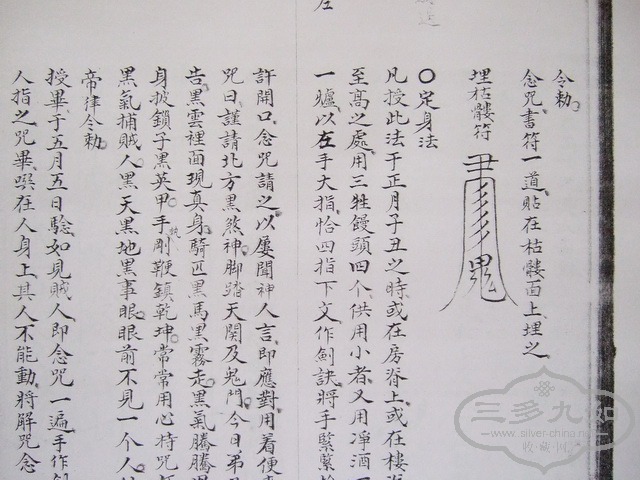 令勅
念咒書符一道貼在枯髏面上埋之
埋枯髏符
鬼
〇定身法
凡授此法于正月子丑之時或在房脊上或在樓
至高之處用三牲饅頭四个供用小者又用淨酒一
一爐以在手大指恰四指下文作劍訣將手緊緊
許開口念咒請之以屡聞神人言即應對用着便
咒曰謹請北方黑煞神脚踏天關及鬼門今日弟
告黑雲裡面現真身騎匹黑馬黑霧走黑氣騰騰
身披鎖子黑英甲手執剛鞭鎮乾坤常常用心持咒
黑氣捕賊人黑天黑地黑事眼眼前不見一个人
帝律令勅
授畢于五月五日驗如見賊人即念咒一遍手作劍
人指之咒畢噀在人身上其人不能動將解咒念
左
三多九如
www.silver-china.net
收·藏·小·